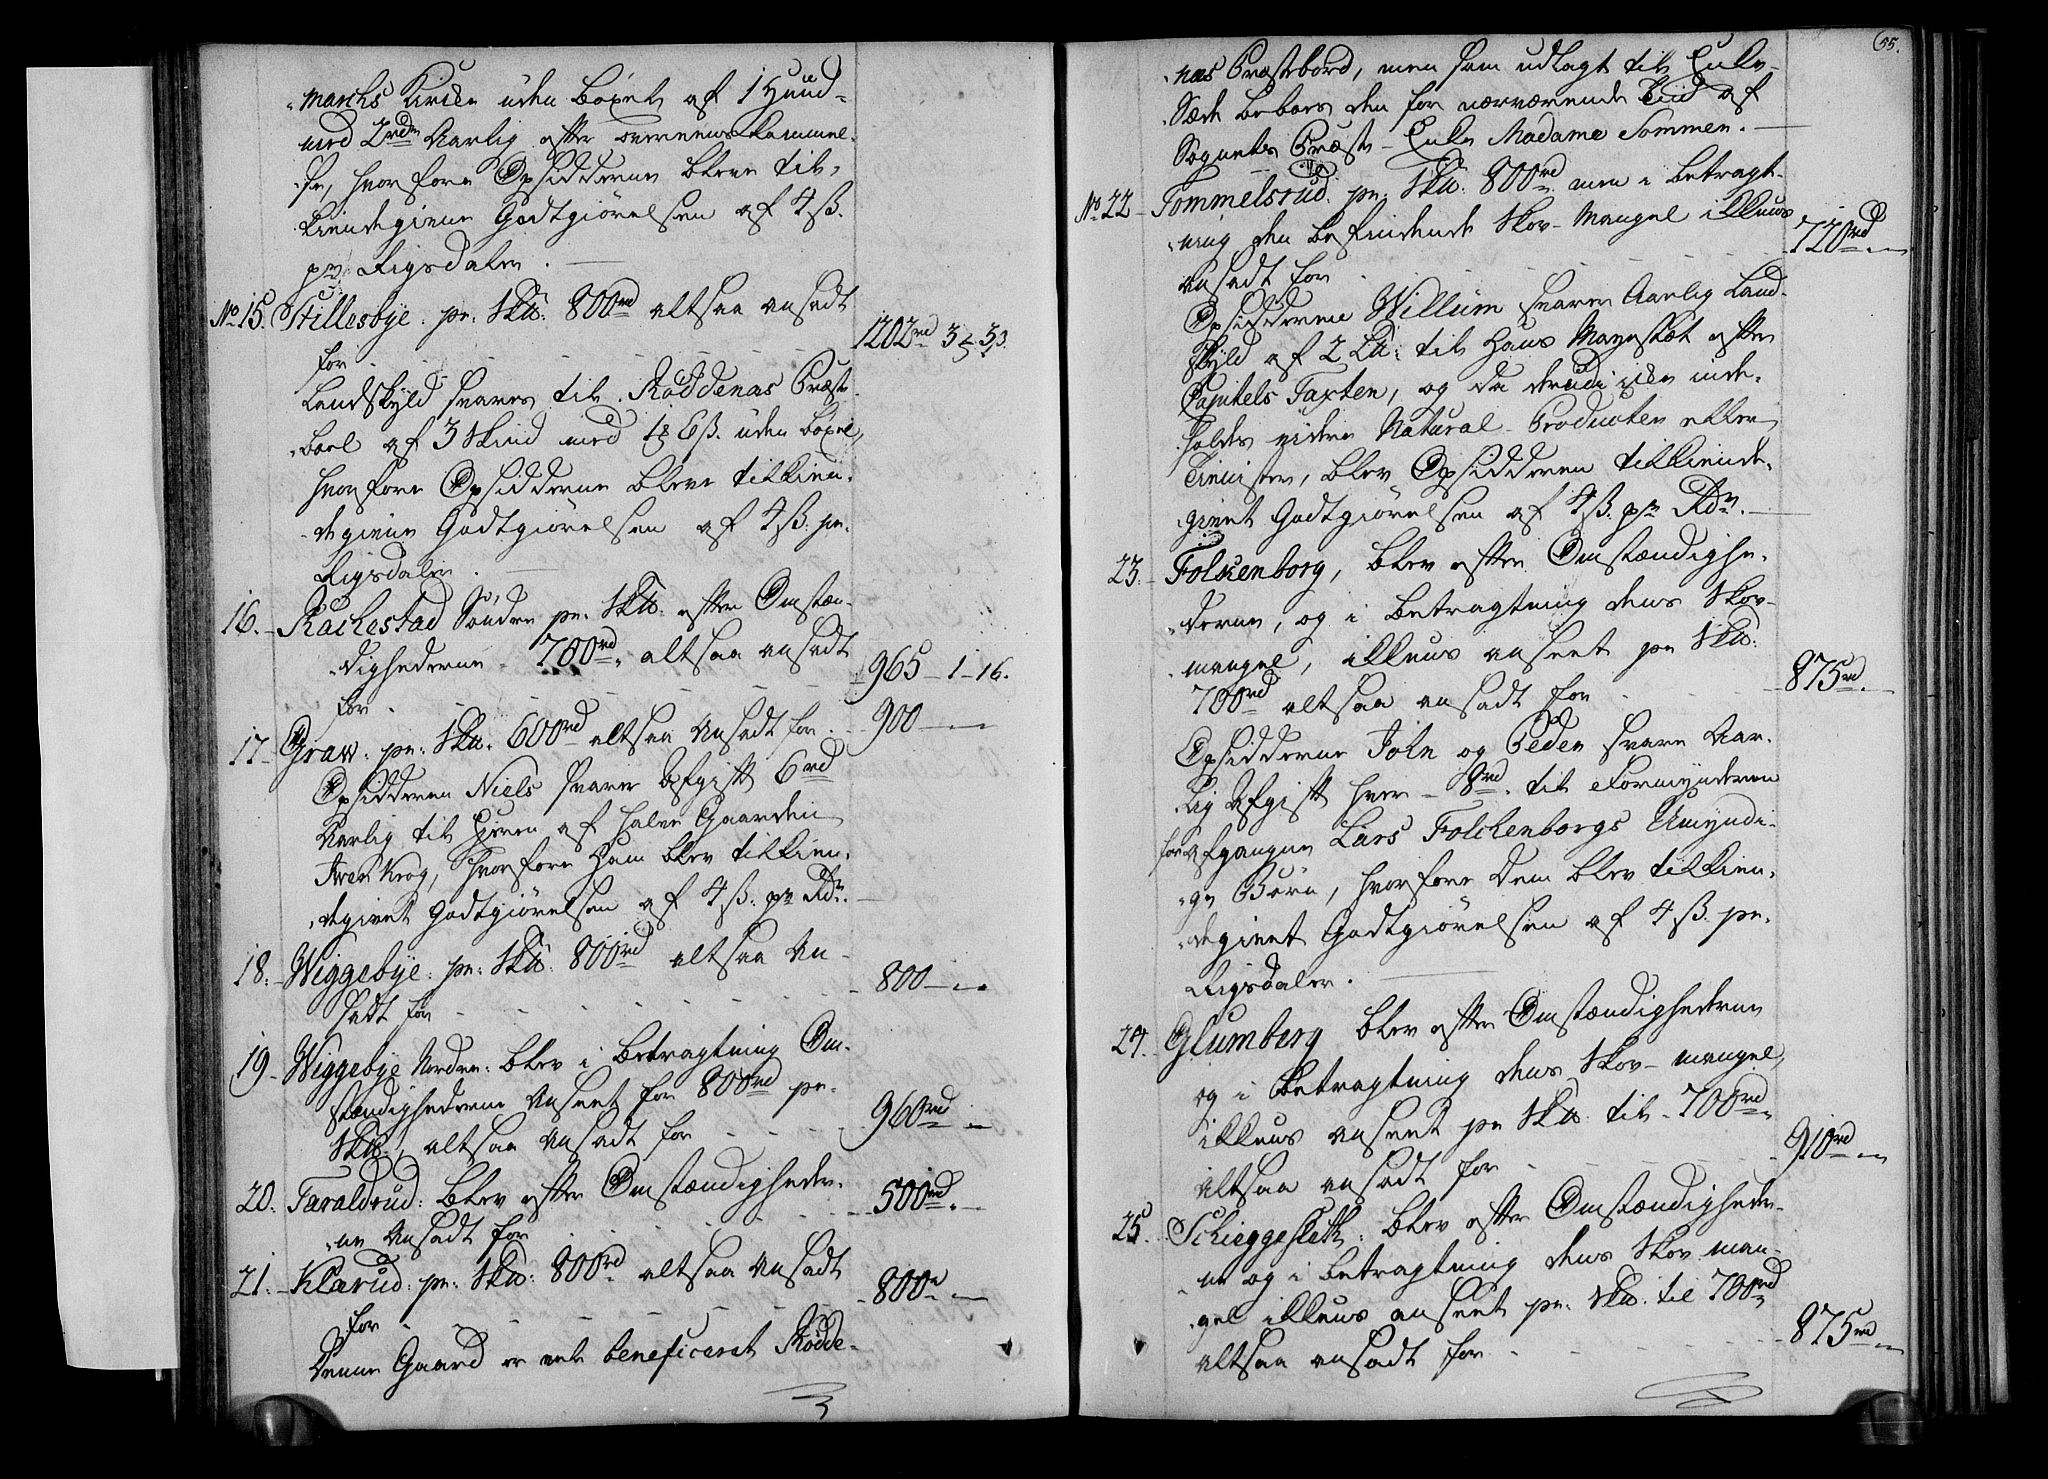 marchs Kircke uden böxel af 1 Huud
med 2rdr Aarlig efter overeenskommel-
se, hvorfore Opsidderne bleve til-
kiendegivne Godtgiörelsen af 4ß.
pr Rigsdaler.
No 15. Stillesbye. pr. Skd: 800rd altsaa ansadt
for 1202rd 3 - 3ß.
Landskyld svares til Röddenæs Præste-
boel af 3 Skind med 1 6ß. uden böxel,
hvorfore Opsidderne bleve tilkien-
degivne Godtgiörelsen af 4ß. pr.
Rigsdaler.
16. Rackestad Söndre pr. Skd. efter Omstæn-
dighederne 700rd, altsaa ansadt
for 965 - 1 - 16.
17. Graw. pr. Skd. 600rd altsaa Ansadt for 900 -
Opsidderen Niels svarer Afgift 6rd
Aarlig til Eyeren af halve Gaarden
Iver Krog, hvorfore Ham blev tilkien-
degivet Godtgiörelsen af 4ß. pr Rdr.
18. Wiggebye. pr. Skd. 800rd altsaa An-
sadt for 800 -
19. Wiggebye Nordre. blev i betragtning Om-
stændighederne Anseet for 800rd pr.
Skd., altsaa Ansadt for 960rd
20. Taraldrud. blev efter Omstændigheder-
ne Ansadt for 500rd.
21. Klarud. pr. Skd. 800rd altsaa Ansadt
for 800rd
Denne Gaard er vel beneficeret Rödde-
55.
næs Præstebord, men som udlagt til Enke-
Sæde beboes den for nærværende Tiid af
Sognets Præste-Enke Madame Sommer.
No 22 Tommelsrud. pr. Skd. 800rd men i betragt-
ning den befindende Skov-Mangel ikkuns
ansadt for 720rd
Opsidderen Willum svarer Aarlig Land-
skyld af 2 Ld. til Hans Mayestet efter
Capitels Taxten, og da derudi icke inde-
holdes videre Natural-Producter eller
Tienister, blev Opsidderen tilkiende-
givet Godtgiörelsen af 4ß. pr Rdr.
23. Folckenborg, blev efter Omstændighe-
derne, og i betragtning dens Skov-
mangel, ikkuns anseet pr Skd.
700rd altsaa ansadt for 875rd.
Opsidderne John og Peder svare Aar-
lig Afgift hver 8rd. til Formynderen
for afgangne Lars Folckenborgs Umyndi-
ge Börn, hvorfore dem blev tilkien-
degivet Godtgiörelsen af 4ß. pr.
Rigsdaler.
24. Glumberg blev efter Omstændighederne
og i betragtning dens Skov-mangel,
ikkuns anseet pr Skd. til 700rd
altsaa ansadt for 910rd
25. Schieggesleth. blev efter Omstændigheder-
ne og i betragtning dens Skov man-
gel ikkuns anseet pr. Skd. til 700rd
altsaa ansadt for 875rd